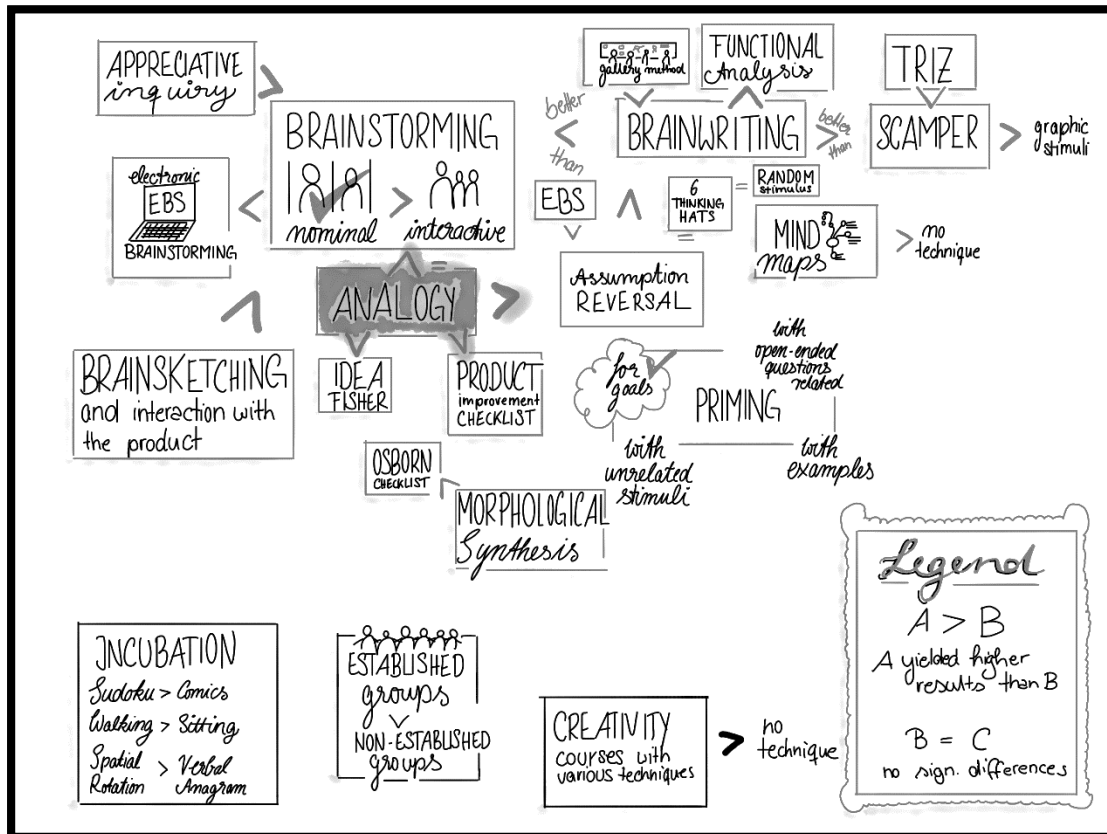 APPRECIATIVE
inquiry
>
BRAINSTORMING
nominal > interactive
electronic
EBS
BRAINSTORMING
<
better
<
than
gallery method
FUNCTIONAL
Analysis
BRAINWRITING
better
>
than
TRIZ
SCAMPER
>
graphic
stimuli
EBS
6
THINKING
HATS
=
RANDOM
stimulus
=
MIND
maps
>
no
technique
Assumption
REVERSAL
=
ANALOGY
>
BRAINSKETCHING
and interaction with
the product
IDEA
FISHER
PRODUCT
improvement
CHECKLIST
for
goals
with
open-ended
questions
related
PRIMING
with
unrelated
stimuli
with
examples
OSBORN
CHECKLIST
MORPHOLOGICAL
Synthesis
INCUBATION
Sudoku > Comics
Walking > Sitting
Spatial
Rotation
>
Verbal
Anagram
ESTABLISHED
groups
NON-ESTABLISHED
groups
CREATIVITY
courses with
various techniques
>
no
technique
Legend
A > B
A yielded higher
results than B
B = C
no sign. differences